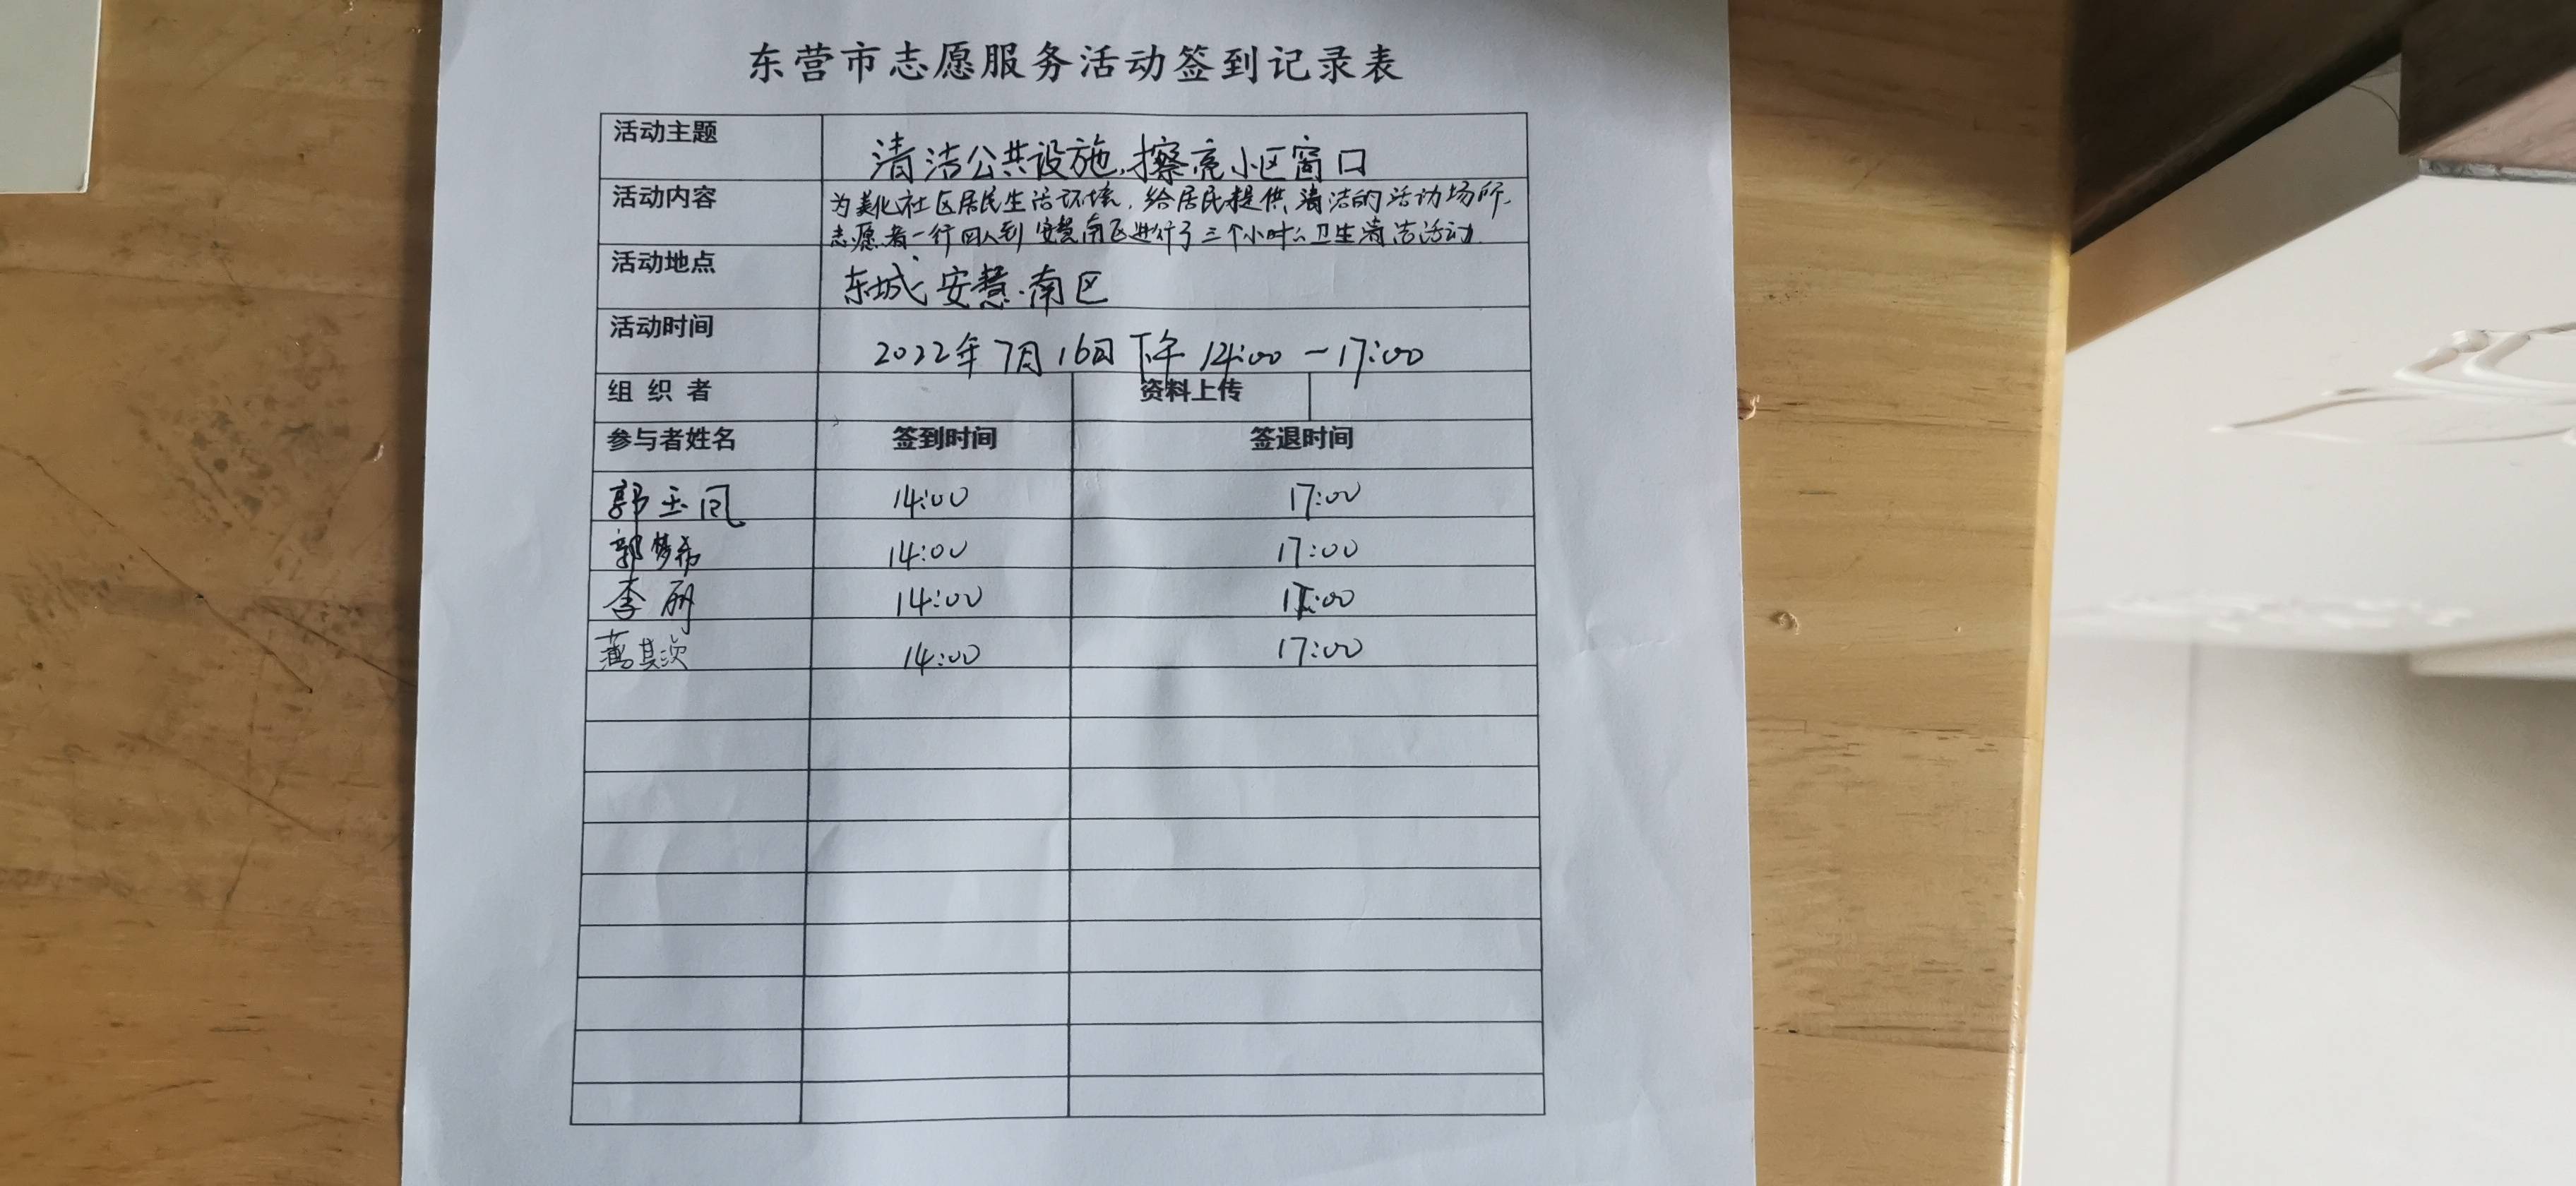 东营市志愿服务活动签到记录表
活动主题 清洁公共设施,擦亮小区窗口
活动内容 为美化社区居民生活环境,给居民提供清洁的活动场所,
志愿者一行四人到安慧南区进行了三个小时的卫生清洁活动.
活动地点 东城、安慧.南区
活动时间 2022年7月16日下午14:00-17:00
组 织 者 资料上传
参与者姓名 签到时间 签退时间
郭玉凤 14:00 17:00
郭梦希 14:00 17:00
李丽 14:00 17:00
14:00 17:00